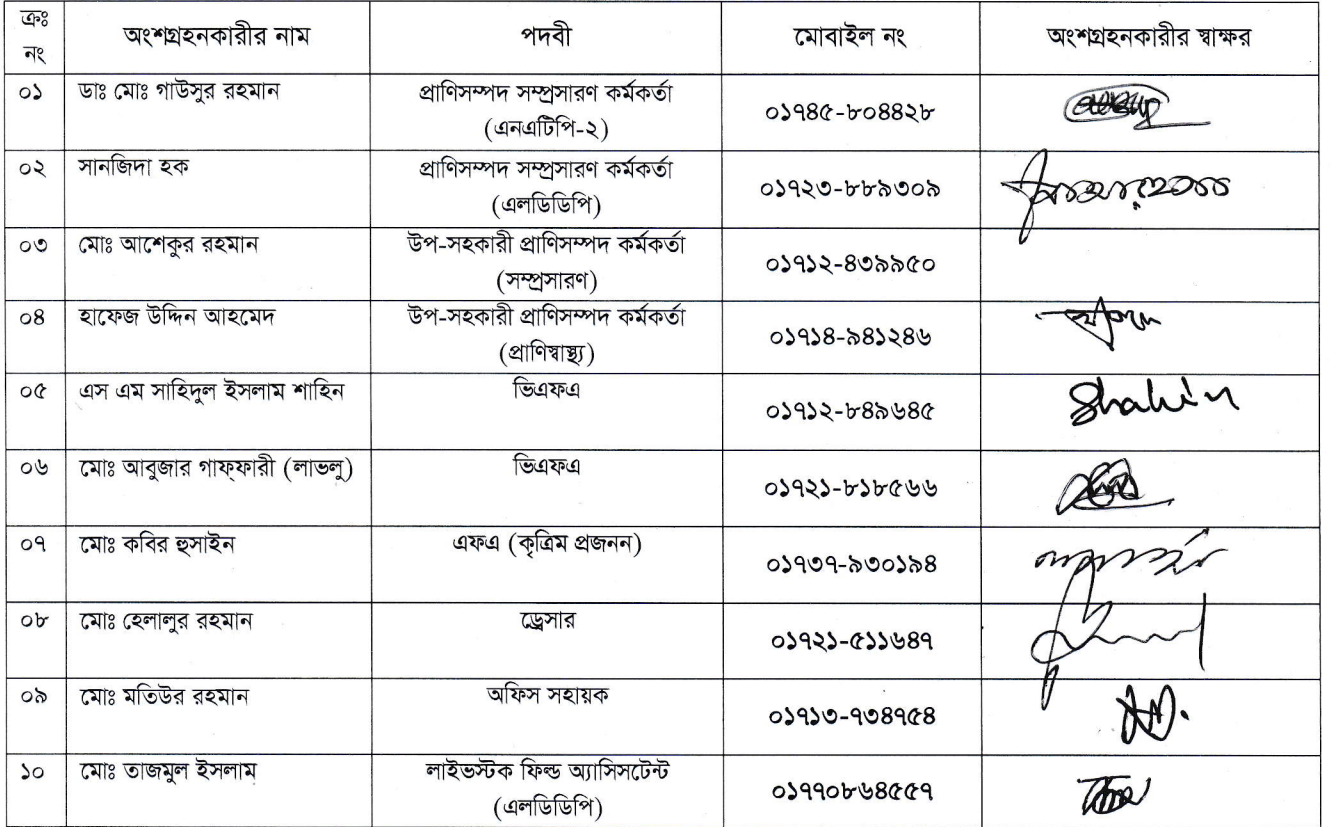 ক্রঃ নং অংশগ্রহনকারীর নাম পদবী মোবাইল নং অংশগ্রহনকারীর স্বাক্ষর
০১ ডাঃ মোঃ গাউসুর রহমান প্রাণিসম্পদ সম্প্রসারণ কর্মকর্তা ০১৭৪৫-৮০৪৪২৮
(এনএটিপি-২)
০২ সানজিদা হক প্রাণিসম্পদ সম্প্রসারণ কর্মকর্তা ০১৭২৩-৮৮৯৩০৯
(এলডিডিপি)
০৩ মোঃ আশেকুর রহমান উপ-সহকারী প্রাণিসম্পদ কর্মকর্তা ০১৭১২-৪৩৯৯৫০
(সম্প্রসারণ)
০৪ হাফেজ উদ্দিন আহমেদ উপ-সহকারী প্রাণিসম্পদ কর্মকর্তা ০১৭১৪-৯৪১২৪৬
(প্রাণিস্বাস্থ্য)
০৫ এস এম সাহিদুল ইসলাম শাহিন ভিএফএ ০১৭১২-৮৪৯৬৪৫ Shahin
০৬ মোঃ আবুজার গাফ্ফারী (লাভলু) ভিএফএ ০১৭২১-৮১৮৫৬৬
০৭ মোঃ কবির হুসাইন এফএ (কৃত্রিম প্রজনন) ০১৭৩৭-৯৩০১৯৪
০৮ মোঃ হেলালুর রহমান ড্রেসার ০১৭২১-৫১১৬৪৭
০৯ মোঃ মতিউর রহমান অফিস সহায়ক ০১৭১৩-৭৩৪৭৫৪
১০ মোঃ তাজমুল ইসলাম লাইভস্টক ফিল্ড অ্যাসিসটেন্ট ০১৭৭০৮৬৪৫৫৭
(এলডিডিপি)